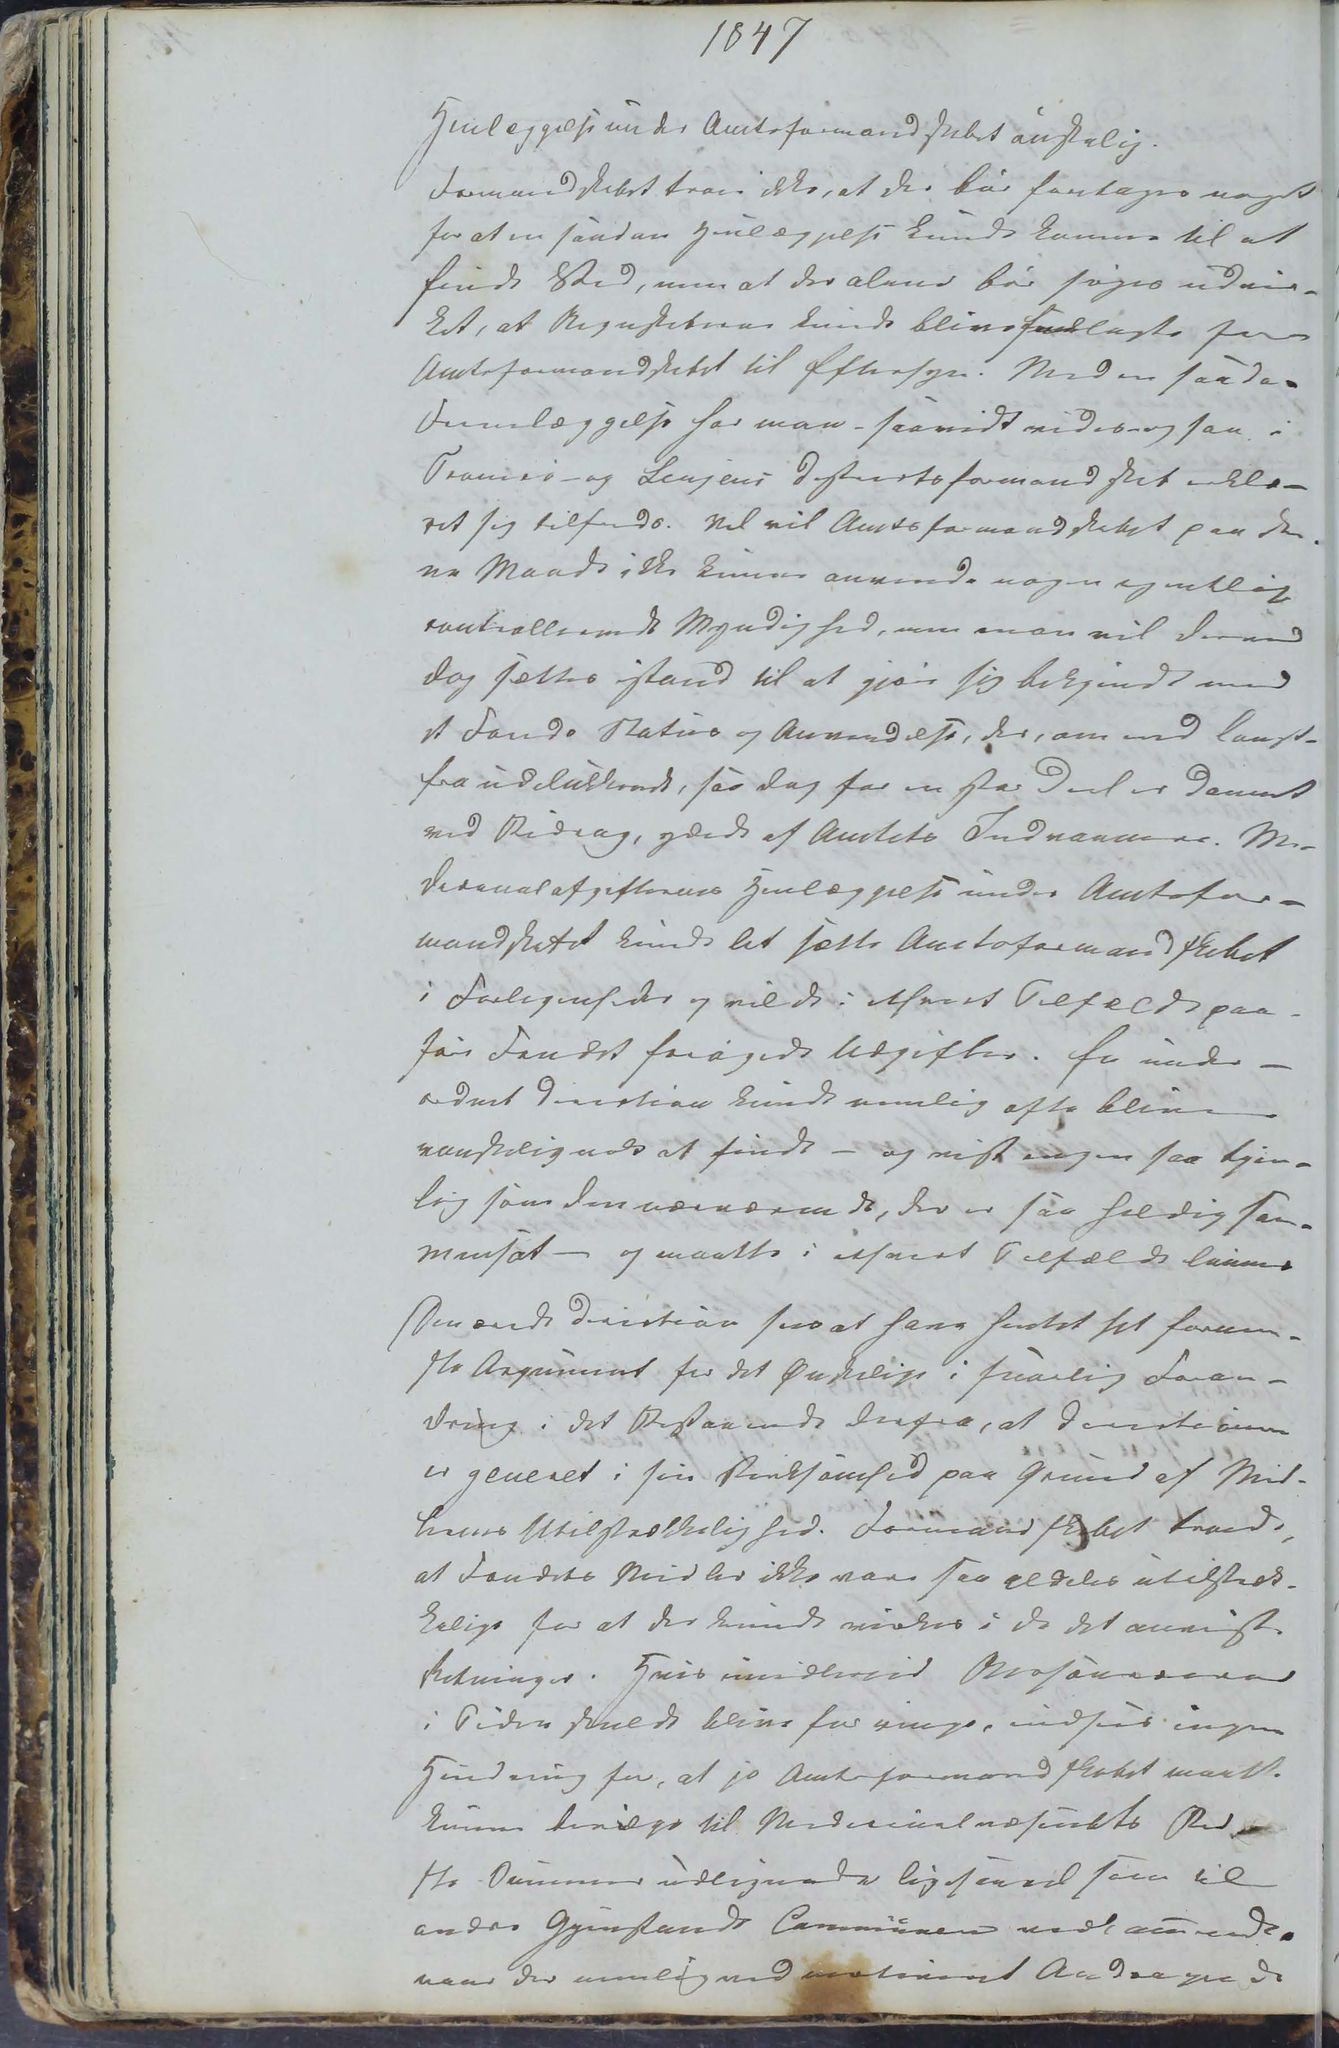 1847
Henlæggelse under Amtsformandskabet ønskelig.
Formandskabet troer ikke, at der bør foretages noget
for at en saadan Henlæggelse kunde komme til at
finde Sted, men at der alene bør søges udvir-
ket, at Regnskaberne kunde blive fremlagte for
Amtsformandskabet til Eftersyn. Med en saada-
Fremlæggelse har man - saavidt vides - ogsaa i
Tromsø- og Lenjens Distriktsformandskab erklæ-
ret sig tilfreds. Vel vil Amtsformandskabet paa den-
ne Maade ikke kunne anvende nogen egentlig
controllerende Myndighed, men man vil derved
dog sættes istand til at gjøre sig bekjendt med
et Fonds Status og Anvendelse, der, om end langt-
fra udelukkende, saa dog for en stor Deel er dannet
ved Bidrag, ydede af Amtets Indvaanere. Me-
dicinalafgifternes Henlæggelse under Amtsfor-
mandskabet kunde let sætte Amtsformandskabet
i Forlegenheder og vilde i ethvert Tilfælde paa-
føre Fondet forøgede Udgifter. En under-
ordnet Direction kunde nemlig ofte blive
vanskelig nok at finde - og vist ingen saa tjen-
lig som den nærværende, der er saa heldig sam-
mensat - og maatte i ethvert Tilfælde lønnes
Den ærede Direction sees at have hentet sit fornem-
ste Argument for det Ønskelige i snarlig Foran-
dring i det Bestaaende derfra, at Directionen
er generet i sin Virksomhed paa Grund af Mid-
lernes Utilstrækkelighed. Formandskabet troede,
at Fondets Midler ikke vare saa aldeles utilstræk-
kelige for at der kunde virkes i de det anviste
Retninger. Hvis imidlertid Ressourcerne
i Tiden skulde blive for ringe, indsees ingen
Hindring for, at jo Amtsformandskabet maatte
kunne bevæge til Medicinalvæsenets Bed-
ste Summer udlignede ligesaavel som til
andre Gjenstande Communen vedkommende,
naar der nemlig ved motiveret Andragende